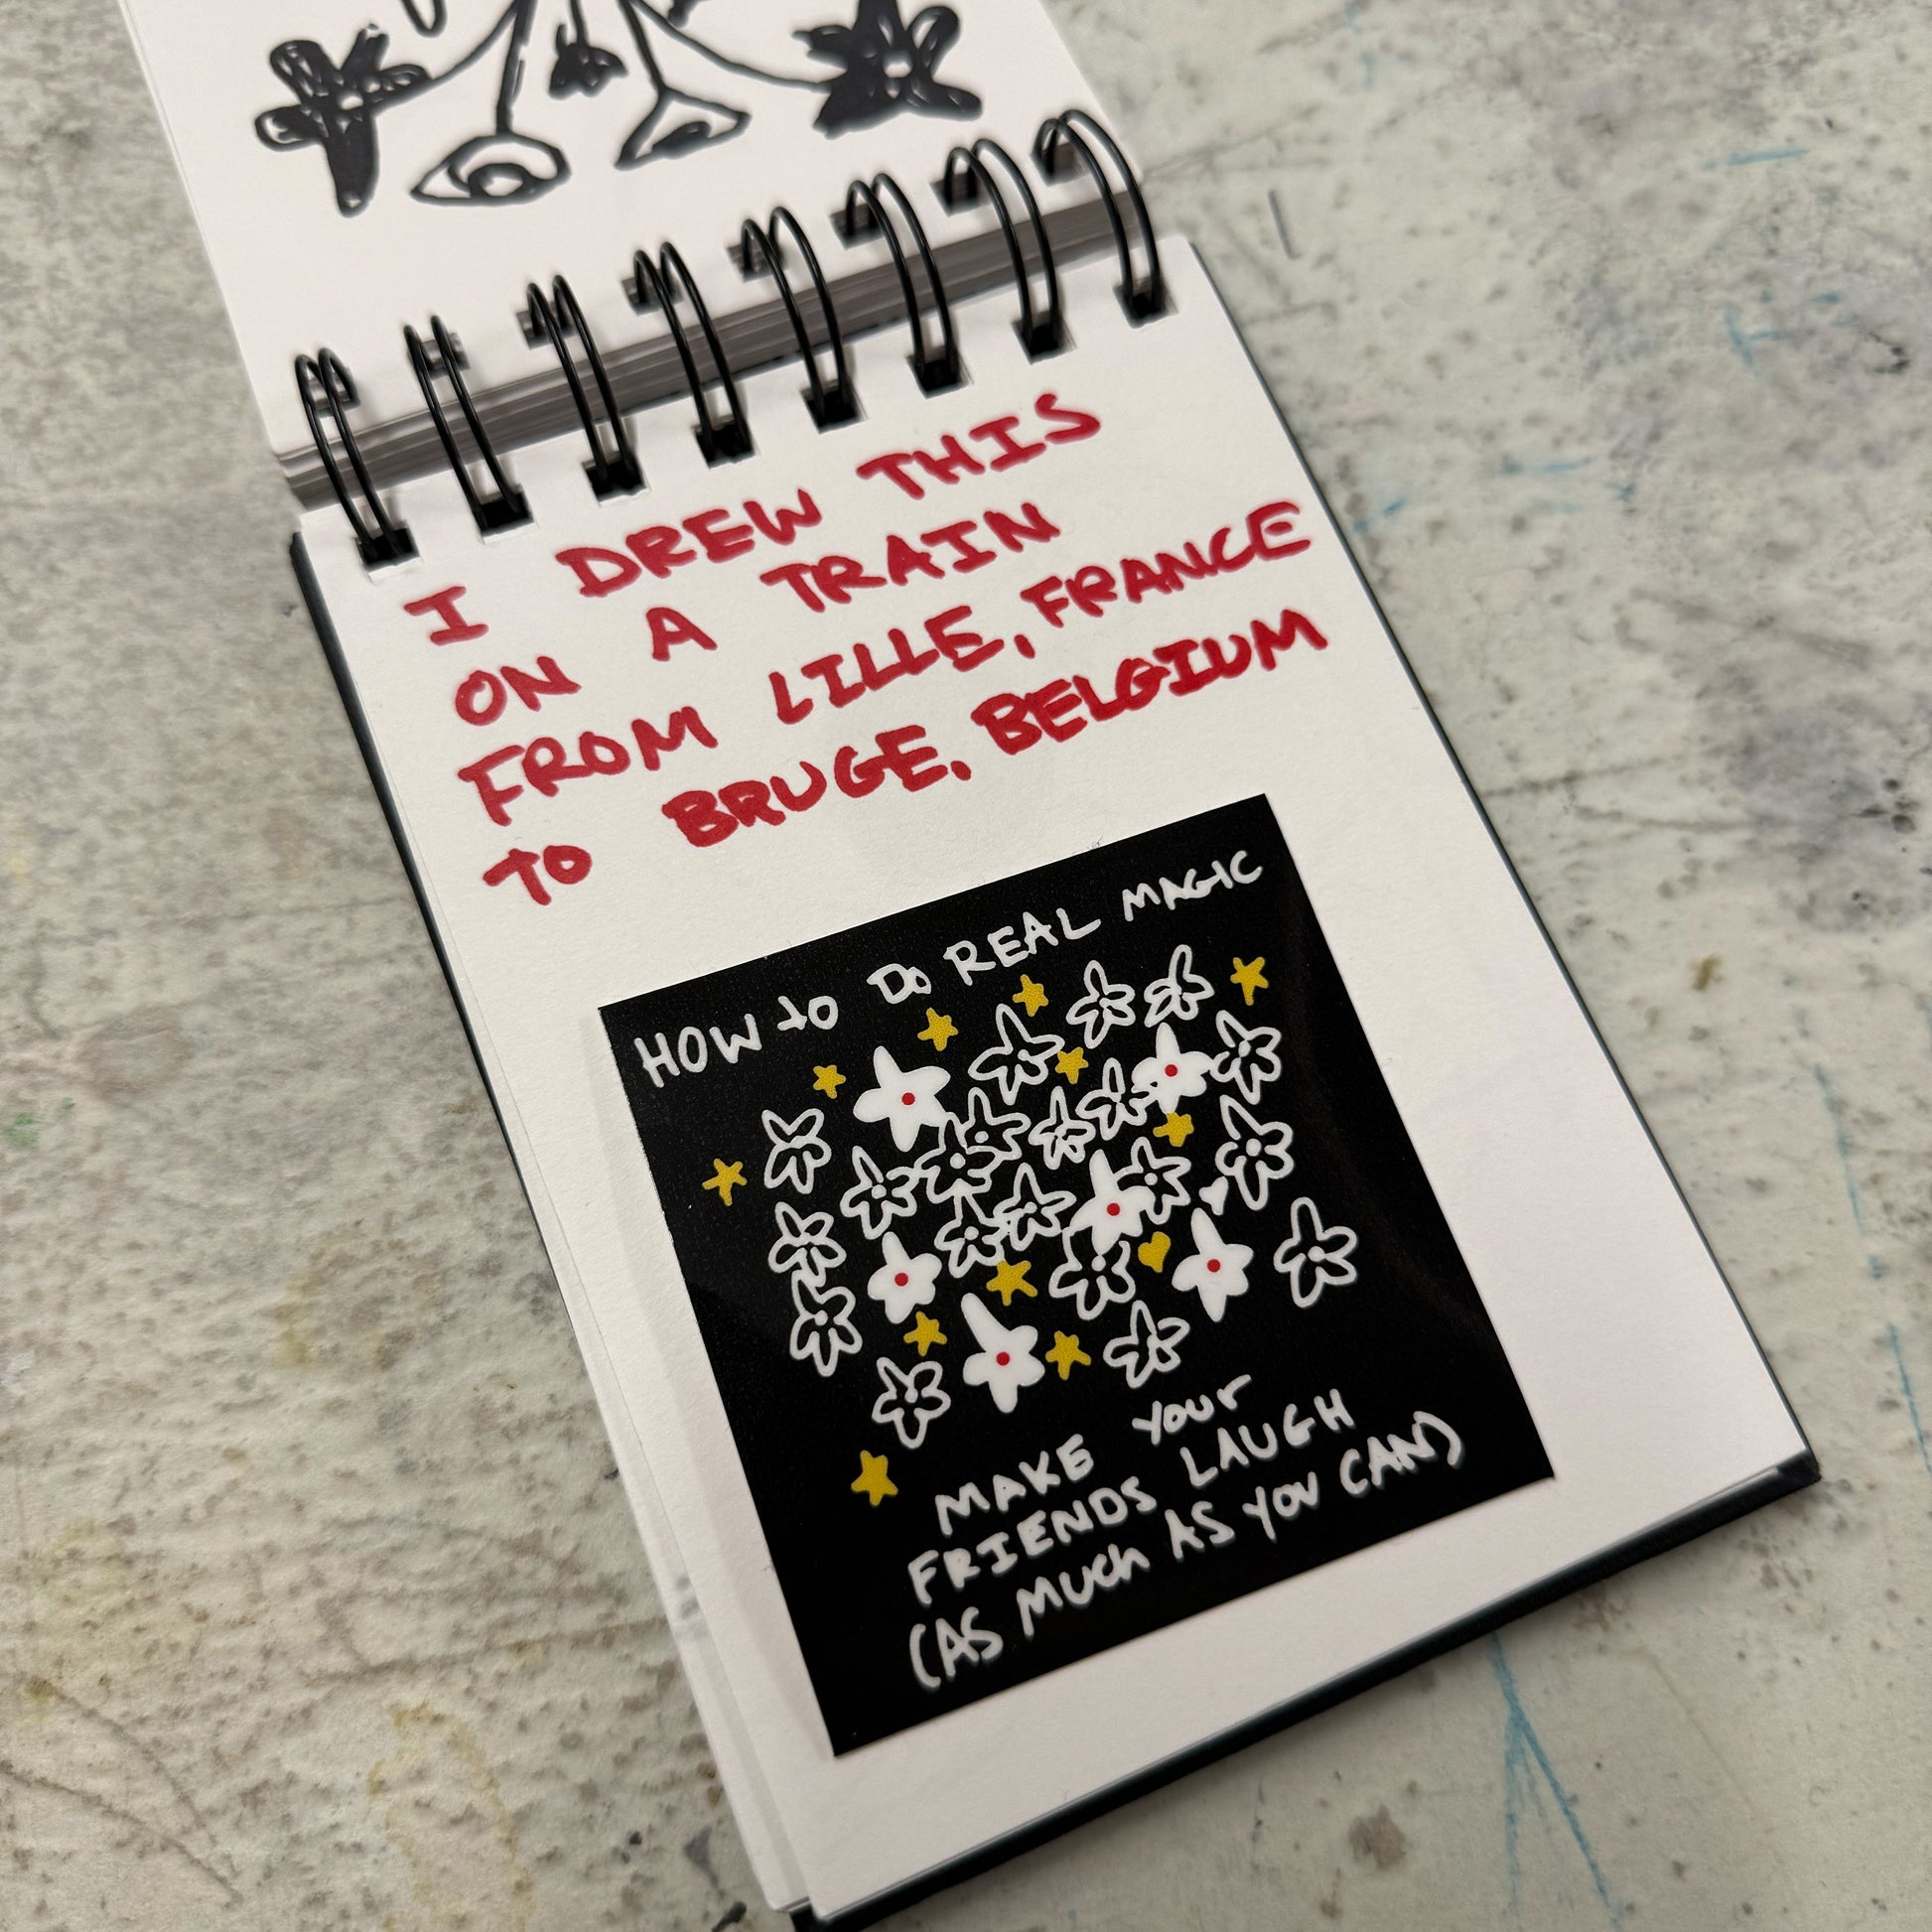 I DREW THIS
ON A TRAIN
FROM LILLE, FRANCE
TO BRUGE, BELGIUM
HOW to Do REAL MAGIC
MAKE your
FRIENDS LAUGH
(AS MUCh AS YOU CAN)